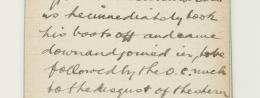 as he immediately took
his boots off and came
down and joined in, to be
followed by the O.C. much
to the disgust of the stern